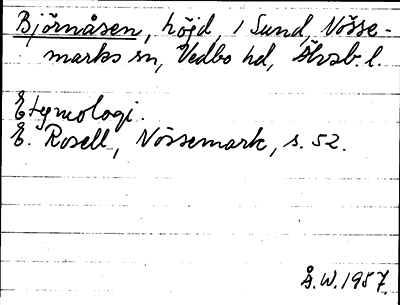 Björnåsen, höjd, i Sund, Nösse-
marks sn, Vedbo hd, Älvsb. l.
Etymologi.
E. Rosell, Nössemark, s. 52.
Å.W. 1987.